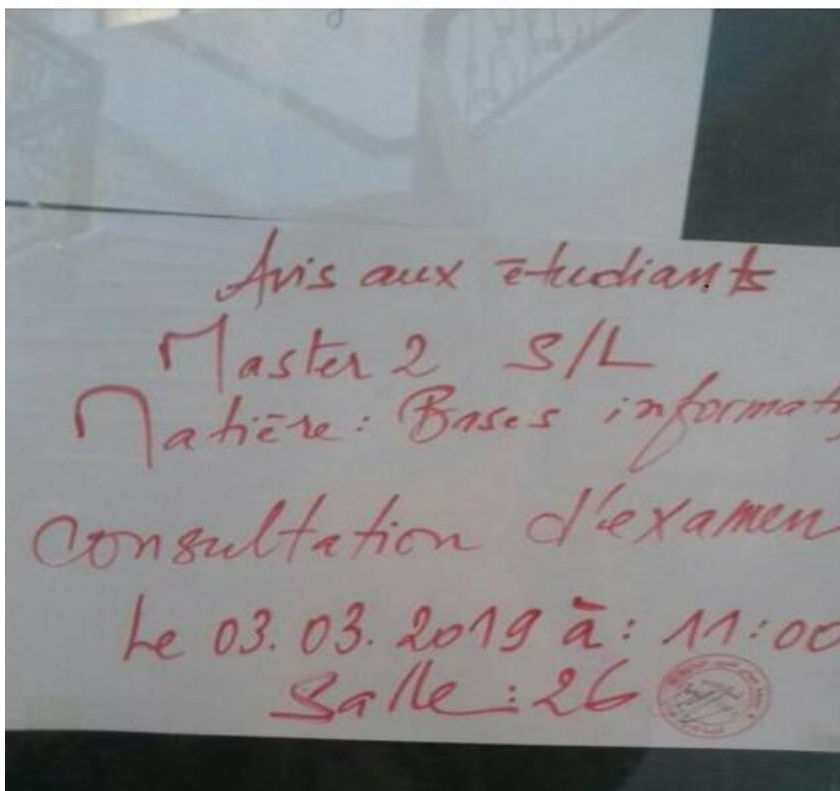 Avis aux étudiants
Master 2 S/L
Matière: Bases informat
Consultation d'examen
Le 03.03.2019 à: 11:00
Salle: 26